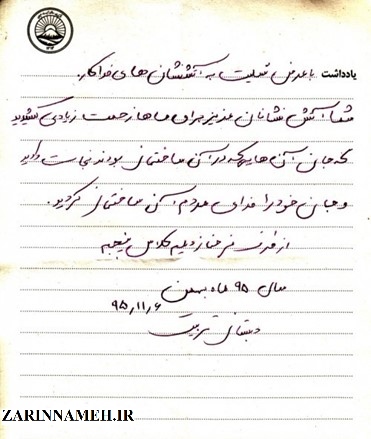 یادداشت با عرض تسلیت به آتشنشان های فداکار.
شما آتش نشانان عزیز برای ماها زحمت زیادی کشیدید
که جان آن هایی که در آن ساختمان بودند نجات دادید
و جان خود را فدای مردم آن ساختمان کردید.
از طرف فرحناز دیبه کلاس پنجم
سال ۹۵ ماه بهمن
۹۵٫۱۱٫۶
دبستان تربیت
ZARINNAMEH.IR